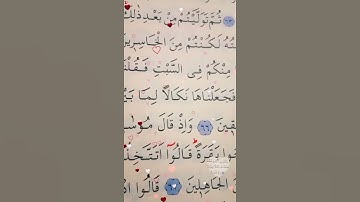 ٦٣ ثُمَّ تَوَلَّيْتُمْ مِنْ بَعْدِ ذٰلِكَ
لَكُنْتُمْ مِنَ الْخَاسِرِينَ
مِنْكُمْ فِى السَّبْتِ فَقُلْنَا
فَجَعَلْنَاهَا نَكَالًا لِمَا
٦٦ وَإِذْ قَالَ
بَقَرَةً قَالُوا أَتَتَّخِذُ
الْجَاهِلِينَ ٦٧ قَالُوا